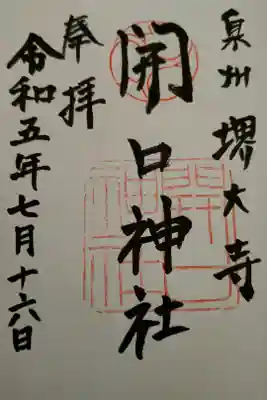 泉州 堺大寺
開口神社
奉拝
令和五年七月十六日
開口
神社